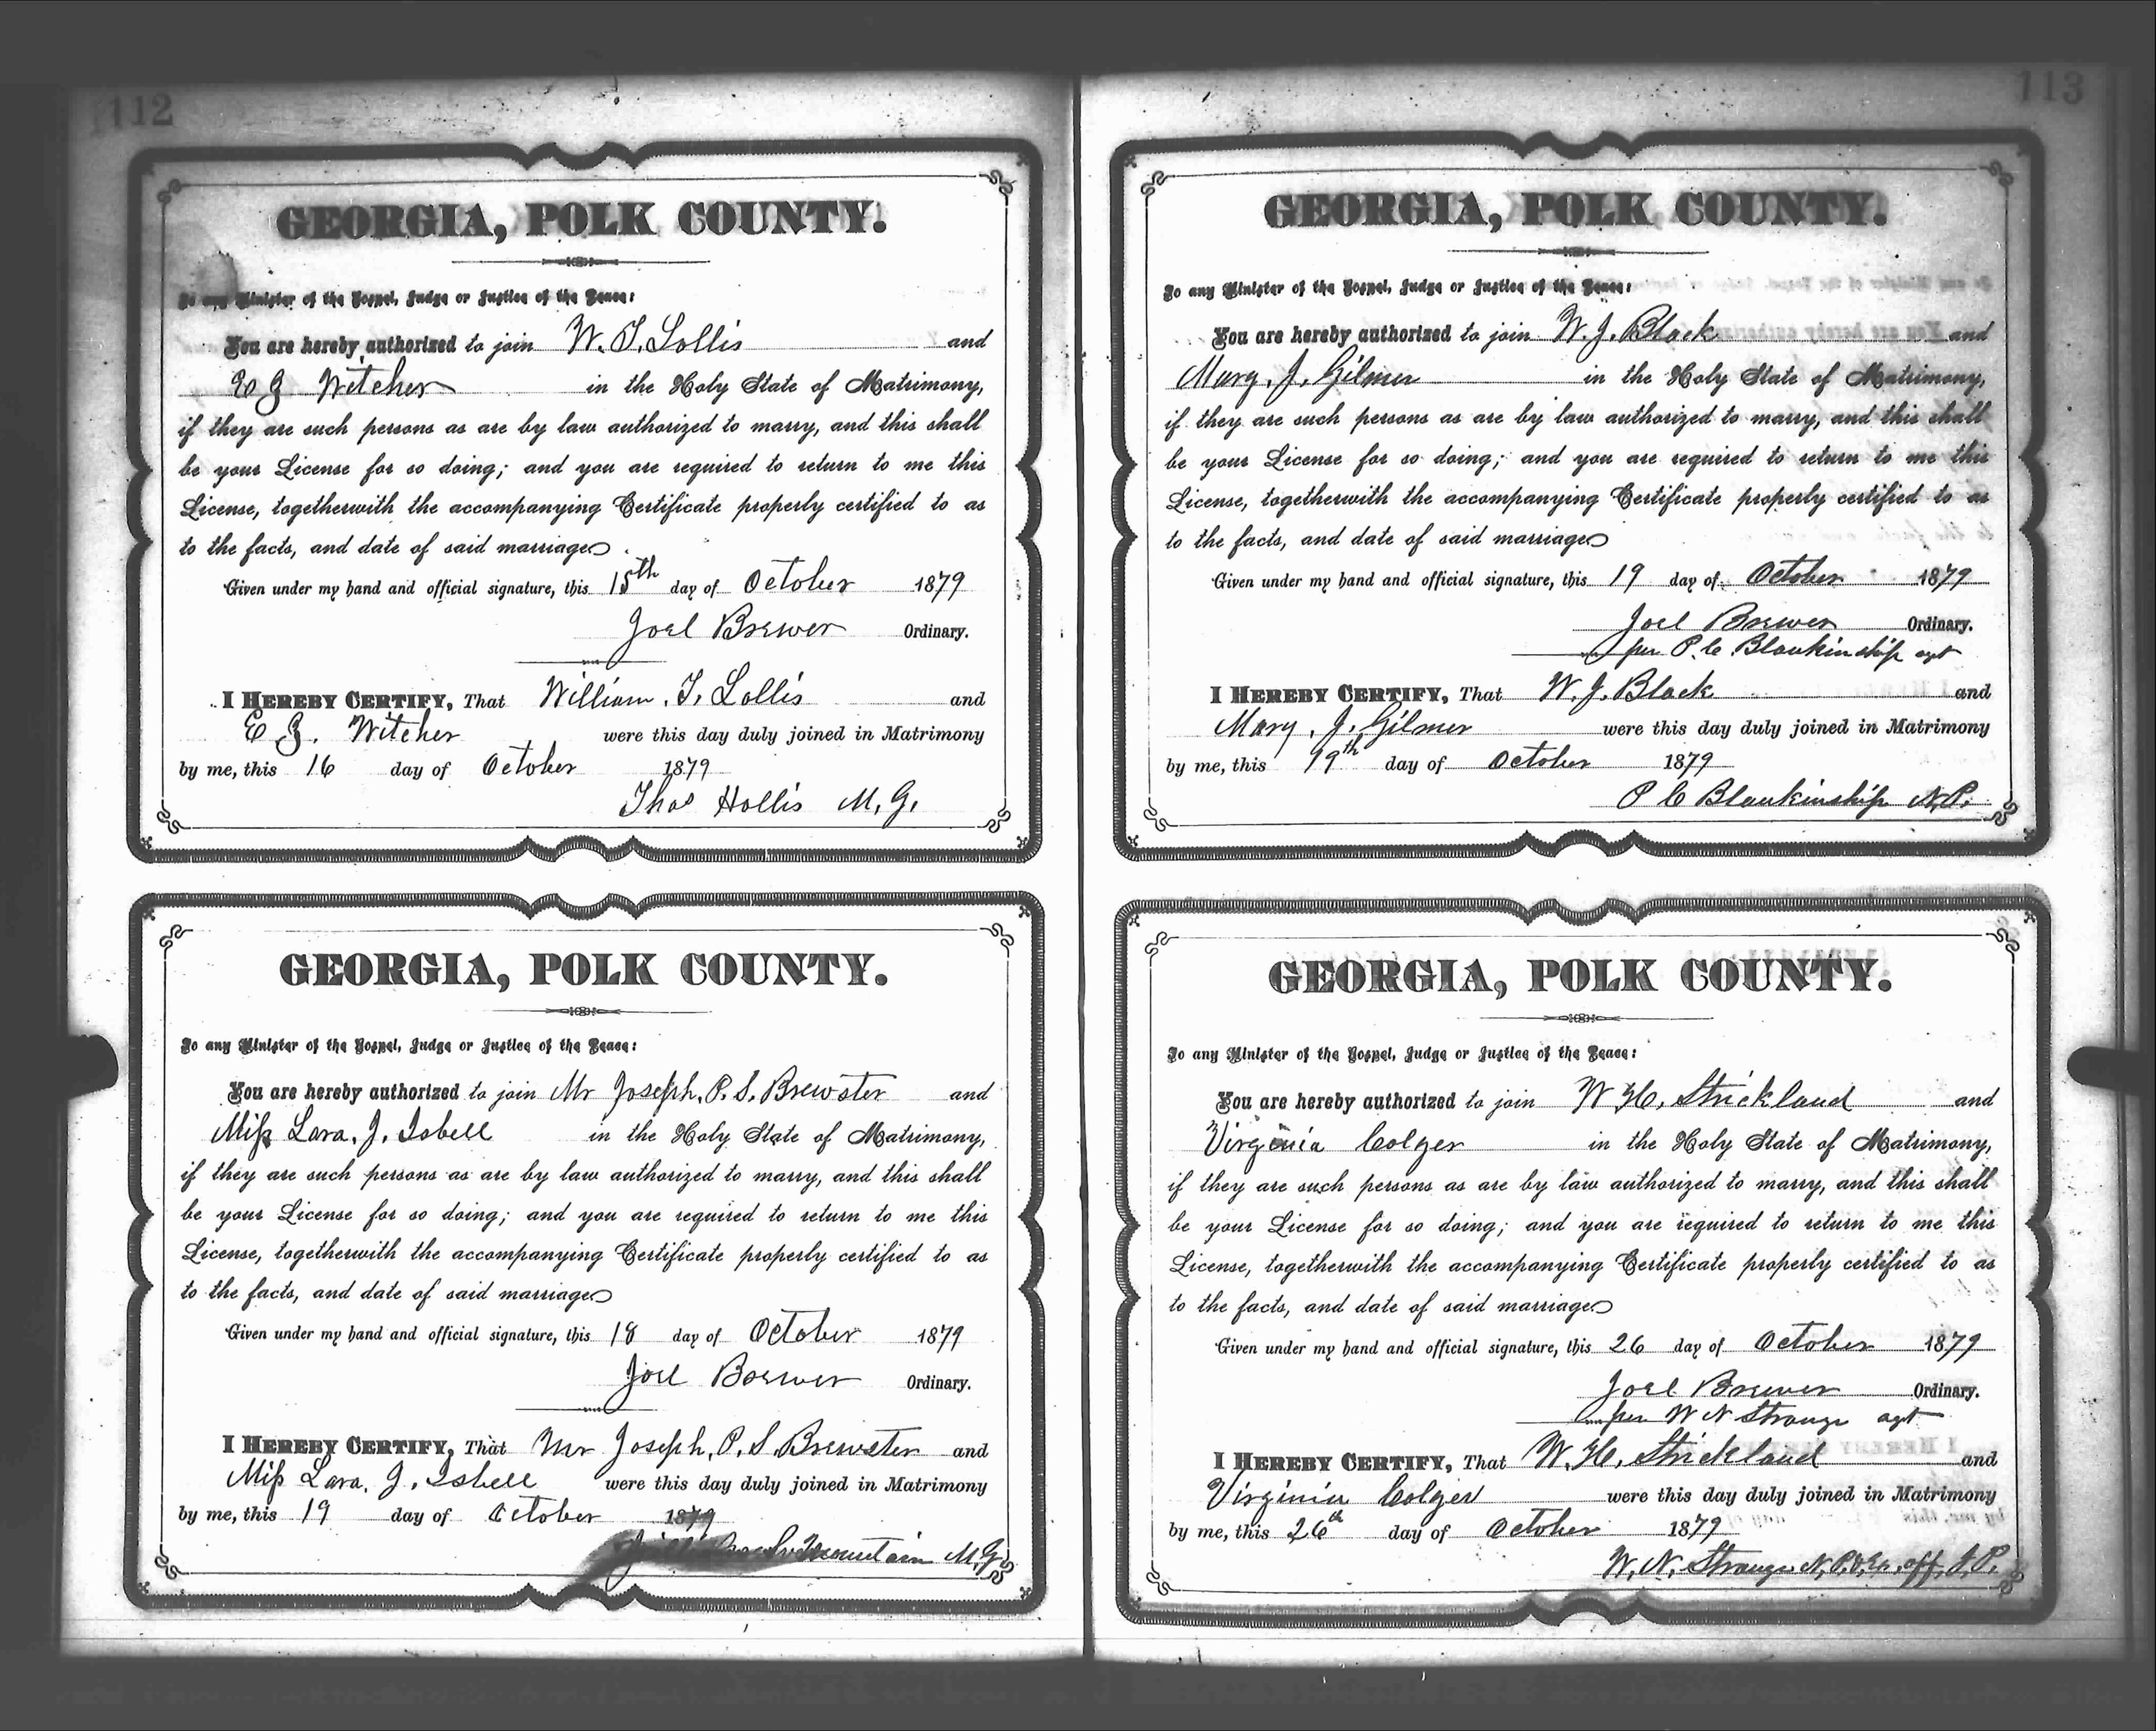 112
GEORGIA, POLK COUNTY.
To any Minister of the Gospel, Judge or Justice of the Peace:
You are hereby authorized to join W. T. Lollis and
E Z Witcher in the Holy State of Matrimony,
if they are such persons as are by law authorized to marry, and this shall
be your License for so doing; and you are required to return to me this
License, togetherwith the accompanying Certificate properly certified to as
to the facts, and date of said marriage
Given under my hand and official signature, this 15th day of October 1879
Joel Brewer Ordinary.
I HEREBY CERTIFY, That William. T. Lollis and
E Z. Witcher were this day duly joined in Matrimony
by me, this 16 day of October 1879
Thos Hollis M. G.
GEORGIA, POLK COUNTY.
To any Minister of the Gospel, Judge or Justice of the Peace:
You are hereby authorized to join Mr Joseph. P. S. Brewster and
Miss Lara. J. Isbell in the Holy State of Matrimony,
if they are such persons as are by law authorized to marry, and this shall
be your License for so doing; and you are required to return to me this
License, togetherwith the accompanying Certificate properly certified to as
to the facts, and date of said marriage
Given under my hand and official signature, this 18 day of October 1879
Joel Brewer Ordinary.
I HEREBY CERTIFY, That Mr Joseph. P. S. Brewster and
Miss Lara. J. Isbell were this day duly joined in Matrimony
by me, this 19 day of October 1879
M. G.
113
GEORGIA, POLK COUNTY.
To any Minister of the Gospel, Judge or Justice of the Peace:
You are hereby authorized to join W. J. Black and
Mary. J. Gilmer in the Holy State of Matrimony,
if they are such persons as are by law authorized to marry, and this shall
be your License for so doing; and you are required to return to me this
License, togetherwith the accompanying Certificate properly certified to as
to the facts, and date of said marriage
Given under my hand and official signature, this 19 day of October 1879
Joel Brewer Ordinary.
per P. C. Blankinship agt
I HEREBY CERTIFY, That W. J. Black and
Mary. J. Gilmer were this day duly joined in Matrimony
by me, this 19th day of October 1879
P C Blankinship N. P.
GEORGIA, POLK COUNTY.
To any Minister of the Gospel, Judge or Justice of the Peace:
You are hereby authorized to join W H. Strickland and
Virginia Colger in the Holy State of Matrimony,
if they are such persons as are by law authorized to marry, and this shall
be your License for so doing; and you are required to return to me this
License, togetherwith the accompanying Certificate properly certified to as
to the facts, and date of said marriage
Given under my hand and official signature, this 26 day of October 1879
Joel Brewer Ordinary.
per W N Strange agt
I HEREBY CERTIFY, That W. H. Strickland and
Virginia Colger were this day duly joined in Matrimony
by me, this 26th day of October 1879
W. N. Strange N. P. & Ex. off. J. P.